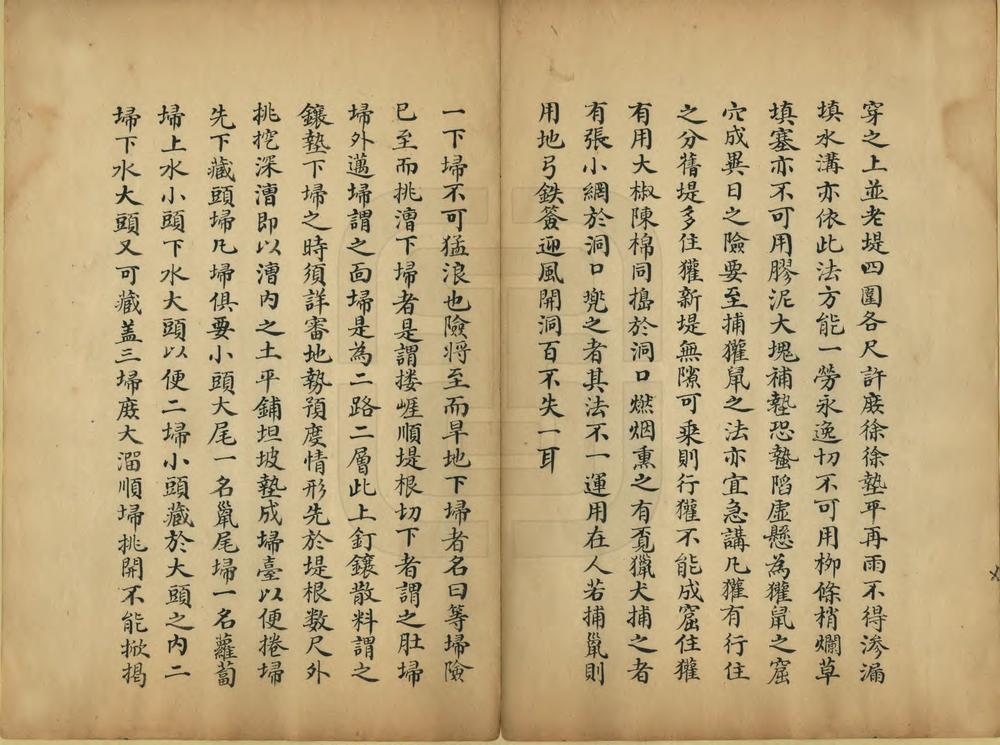 穿之上並老堤四圍各尺許廢徐徐墊平再雨不得滲漏
填水溝亦依此法方能一勞永逸切不可用柳條梢爛草
填塞亦不可用膠泥大塊補墊恐蟄陷虛懸為獾鼠之窟
穴成異日之險要至捕獾鼠之法亦宜急講凡獾有行住
之分舊堤多住獾新堤無隙可乘則行獾不能成窟住獾
有用大椒陳棉同搗於洞口燃烟熏之有覓獵犬捕之者
有張小網於洞口兜之者其法不一運用在人若捕鼠則
用地弓鉄簽迎風開洞百不失一耳
一下埽不可猛浪也險將至而旱地下埽者名曰等埽險
已至而挑漕下埽者是謂摟崖順堤根切下者謂之肚埽
埽外邁埽謂之面埽是為二路二層此上釘鑲散料謂之
鑲墊下埽之時須詳審地勢預度情形先於堤根數尺外
挑挖深漕即以漕內之土平鋪坦坡墊成埽臺以便捲埽
先下藏頭埽凡埽俱要小頭大尾一名鼠尾埽一名蘿蔔
埽上水小頭下水大頭以便二埽小頭藏於大頭之內二
埽下水大頭又可藏蓋三埽庶大溜順埽挑開不能掀揭